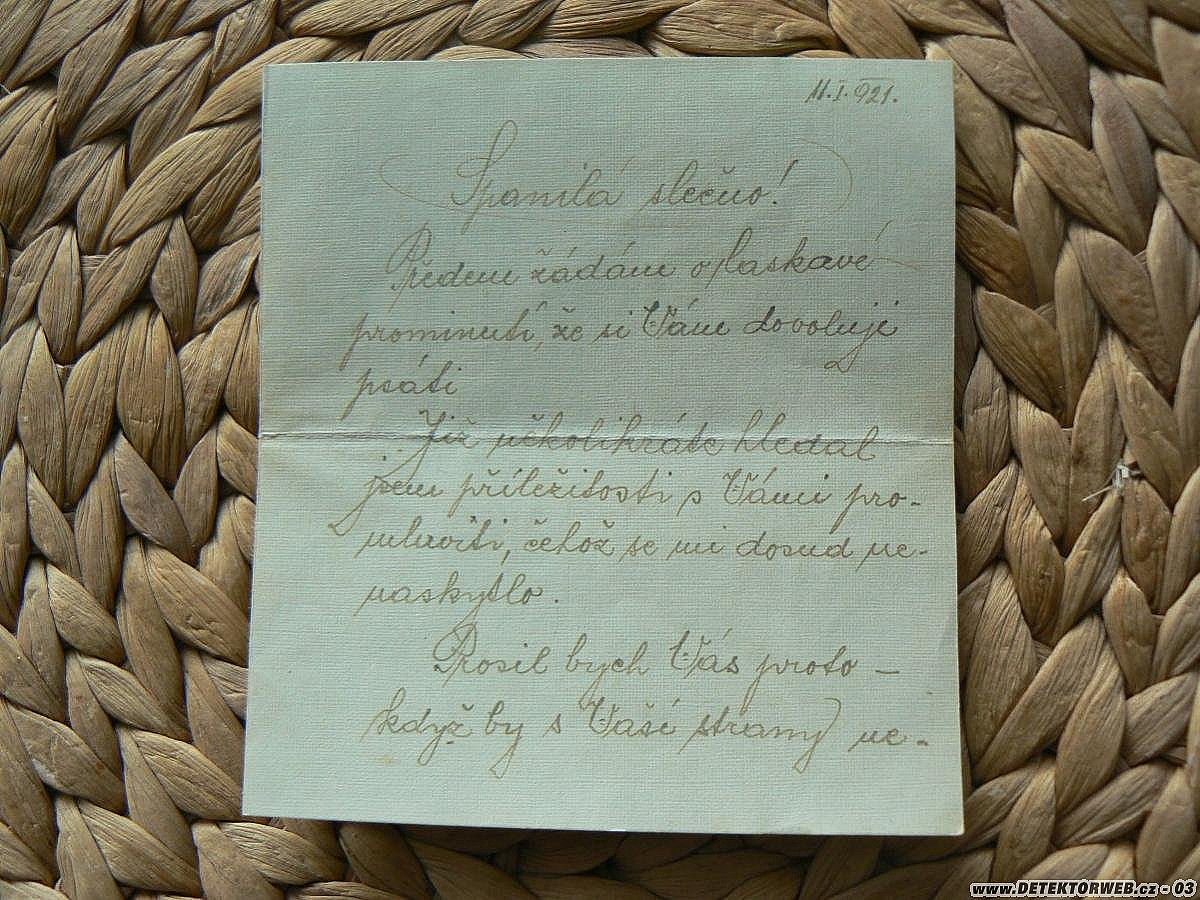 11.I.921.
Spanilá slečno!
Předem žádám o laskavé
prominutí, že si Vám dovoluji
psáti
Již několikráte hledal
jsem příležitosti s Vámi pro-
mluviti, čehož se mi dosud ne-
naskytlo.
Prosil bych Vás proto –
když by s Vaší strany ne-
www.DETEKTORWEB.cz - 03